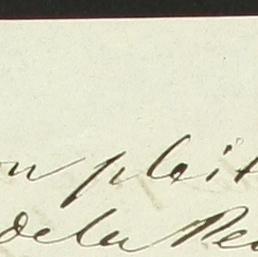 on plait
de la Re